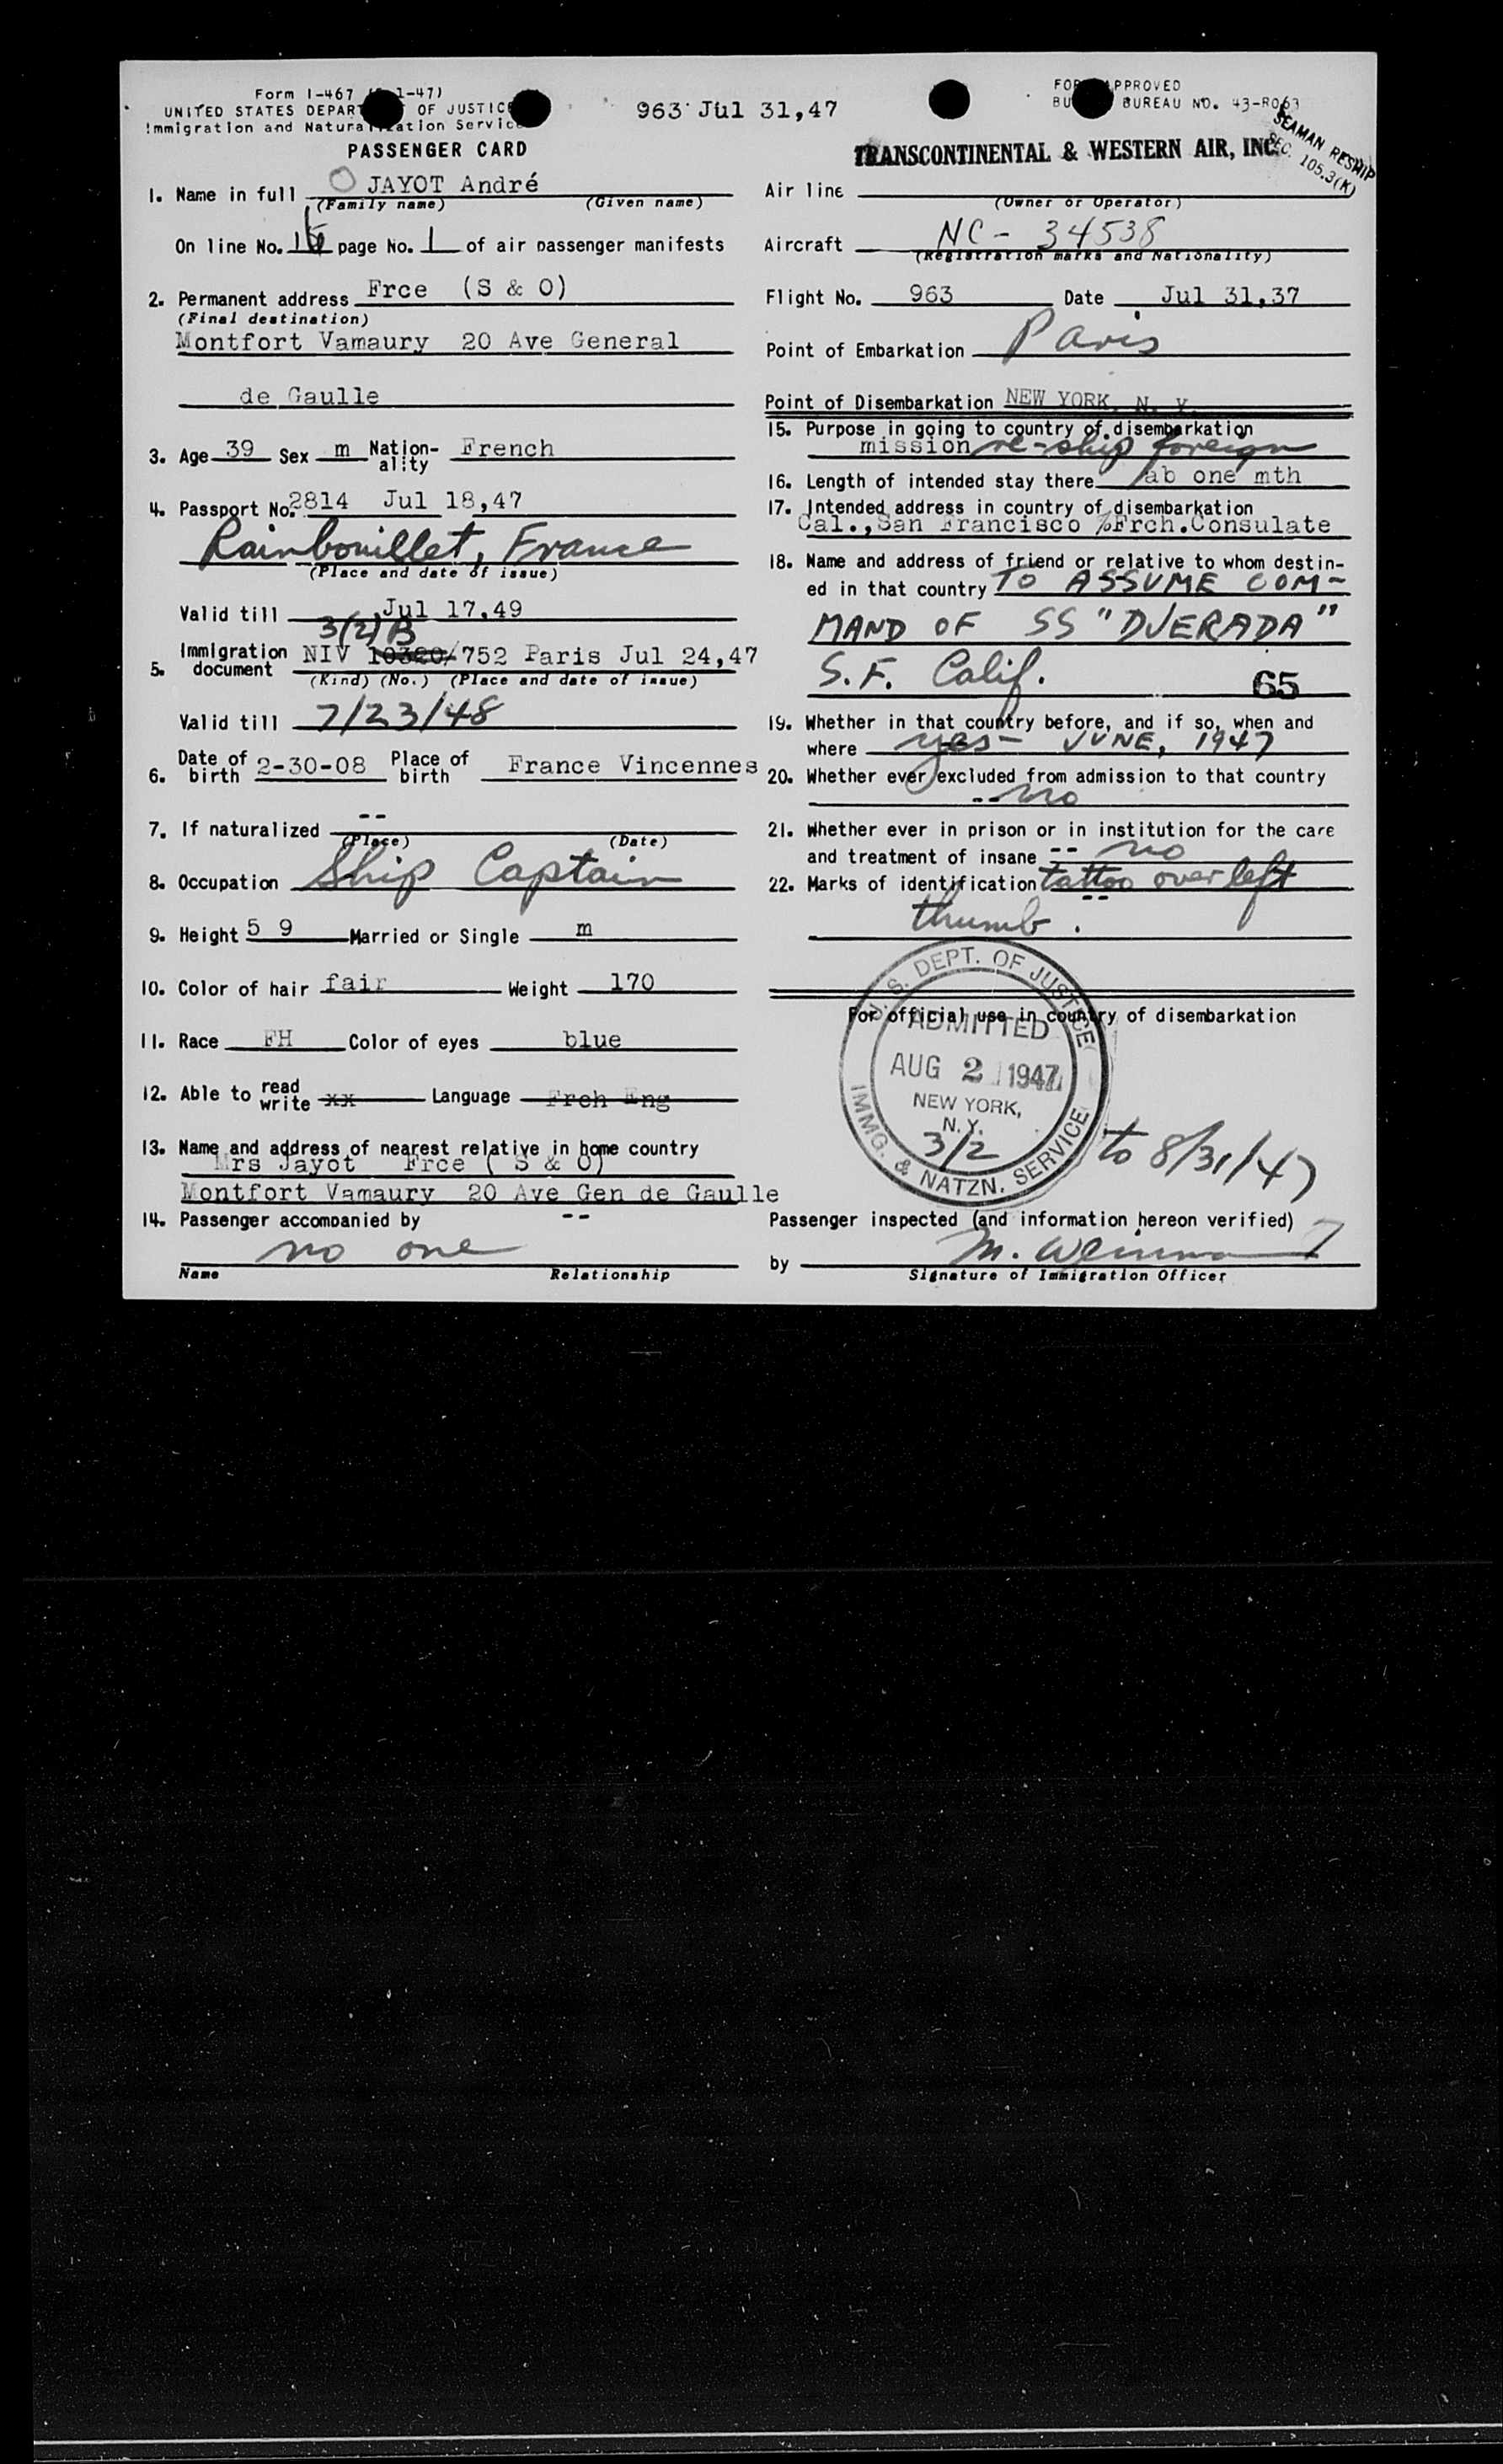 Form I-467 1-47)
UNITED STATES DEPAR OF JUSTICE
Immigration and Naturalization Service
PASSENGER CARD
963 Jul 31,47
FOR APPROVED
BU BUREAU NO. 43-R063
SEAMAN RESHIP
SEC. 105.3(K)
TRANSCONTINENTAL & WESTERN AIR, INC.
1. Name in full JAYOT André
(Family name) (Given name)
On line No. page No. 1 of air passenger manifests
2. Permanent address Frce (S & O)
(Final destination)
Montfort Vamaury 20 Ave General
de Gaulle
3. Age 39 Sex m Nation-ality French
4. Passport No. 2814 Jul 18,47
Rainbouillet, France
(Place and date of issue)
Valid till Jul 17,49
3(2) B
5. Immigration document NIV 10320/752 Paris Jul 24,47
(Kind) (No.) (Place and date of issue)
Valid till 7/23/48
6. Date of birth 2-30-08 Place of birth France Vincennes
7. If naturalized --
(Place) (Date)
8. Occupation Ship Captain
9. Height 5 9 Married or Single m
10. Color of hair fair Weight 170
11. Race FH Color of eyes blue
12. Able to read write xx Language Frch Eng
13. Name and address of nearest relative in home country
Mrs Jayot Frce ( S & O)
Montfort Vamaury 20 Ave Gen de Gaulle
14. Passenger accompanied by --
no one
Name Relationship
Air line
(Owner or Operator)
Aircraft NC - 34538
(Registration marks and Nationality)
Flight No. 963 Date Jul 31,37
Point of Embarkation Paris
Point of Disembarkation NEW YORK, N. Y.
15. Purpose in going to country of disembarkation
mission re-ship foreign
16. Length of intended stay there ab one mth
17. Intended address in country of disembarkation
Cal., San Francisco %Frch.Consulate
18. Name and address of friend or relative to whom destin-
ed in that country TO ASSUME COM-
MAND OF SS "DJERADA"
S.F. Calif. 65
19. Whether in that country before, and if so, when and
where yes - JUNE, 1947
20. Whether ever excluded from admission to that country
-- no
21. Whether ever in prison or in institution for the care
and treatment of insane -- no
22. Marks of identification tattoo over left
--
thumb .
For official use in country of disembarkation
U. S. DEPT. OF JUSTICE
ADMITTED
AUG 2 1947
NEW YORK,
N.Y.
3/2
IMMG. & NATZN. SERVICE
to 8/31/47
Passenger inspected (and information hereon verified)
by M.
Signature of Immigration Officer